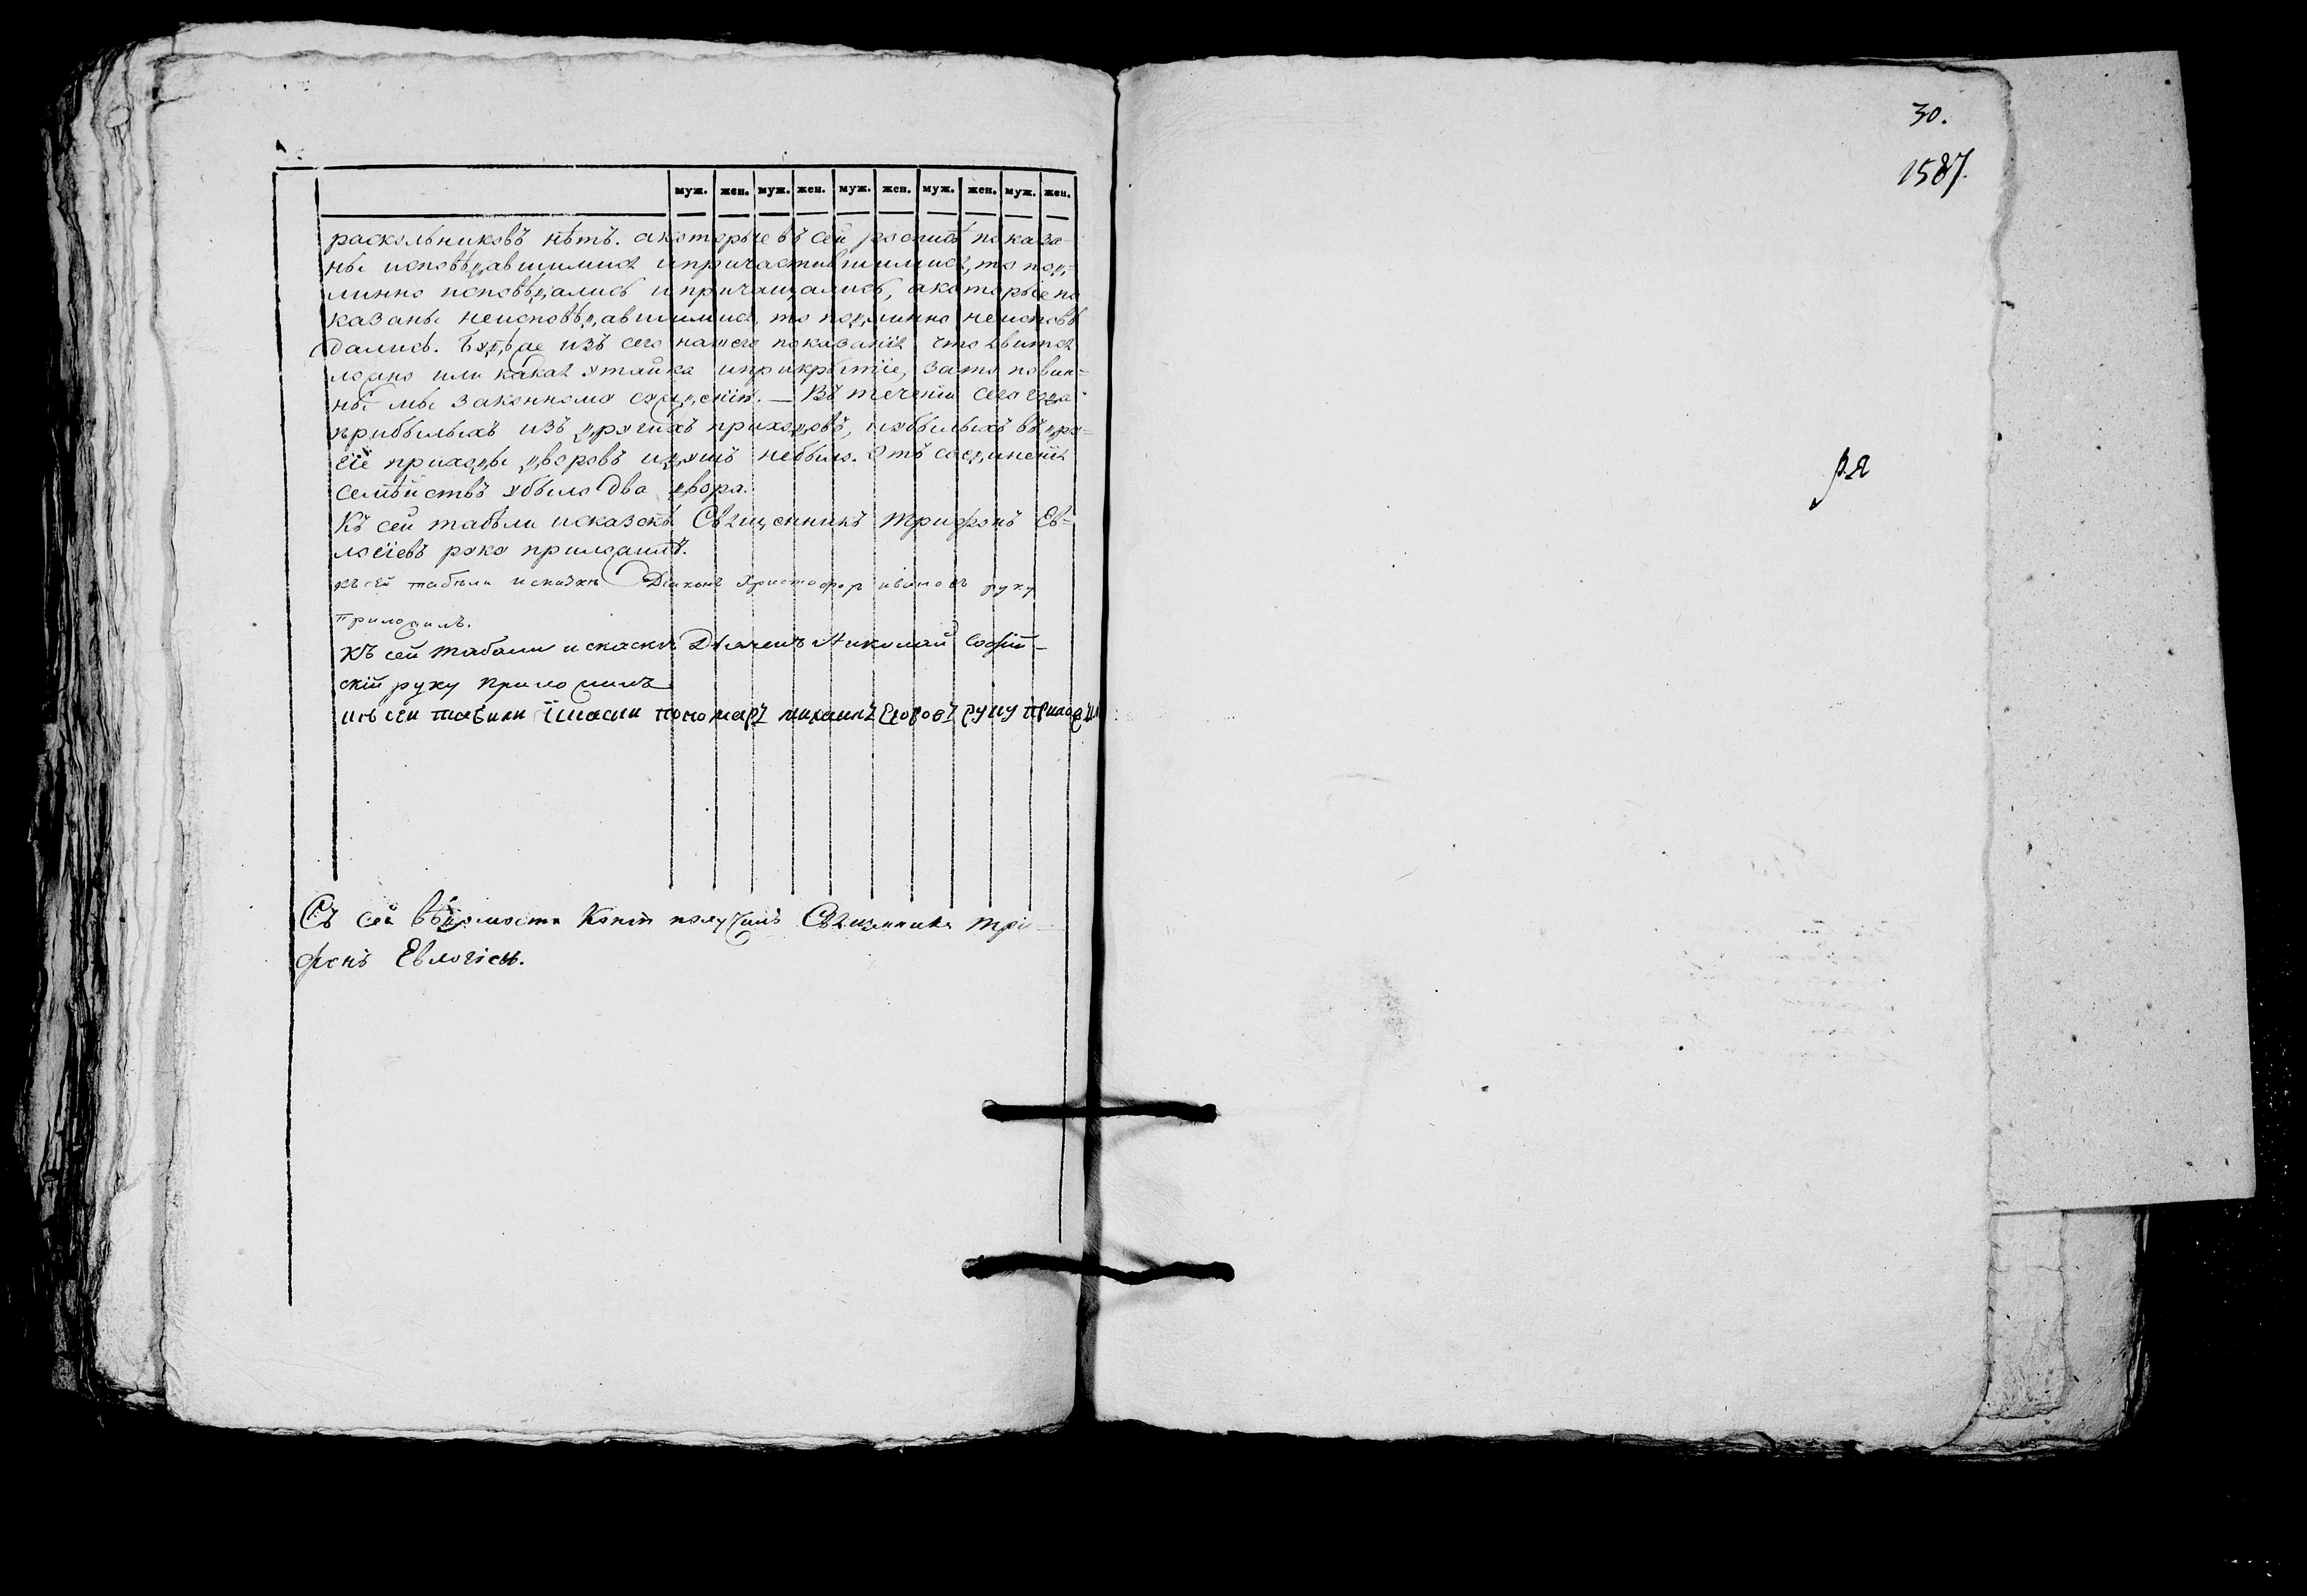 муж. жен. муж. жен. муж. жен. муж. жен. муж. жен.
раскольниковъ нѣтъ. а которые въ сей росписѣ показа-
ны исповѣдавшимися и причастившимися, то под-
линно исповѣдались и причащались, а которые по
казаны неисповѣдавшимися, то подлинно неисповѣ
дались. Бꙋде же изъ сего нашего показанїя что явится
ложно или какая ꙋтайка и прикрытїе, за то повин-
ны мы законномꙋ сꙋжденїю. — Въ теченїи сего года
прибылыхъ изъ дрꙋгихъ приходовъ, и ꙋбылыхъ въ дрꙋ-
гїе приходы дворовъ и дꙋшъ небыло. Отъ соединенїя
семѣйствъ ꙋбыло два двора.
Къ сей табѣли и сказкѣ Священникъ Трифонъ Ев-
логїевъ рꙋкꙋ приложилъ.
къ сей табѣли и сказкѣ Дїаконъ Христофоръ ивановъ руку
приложилъ.
Къ сей табели и скаскѣ Дьячекъ Николай Софій-
скій руку приложилъ
къ сей табили їскаски пономаръ михаилъ Егоровъ руку приложил
Съ сей вѣдомости Копїю получилъ Священникъ Три-
фонъ Евлогіевъ.
30.
1587.